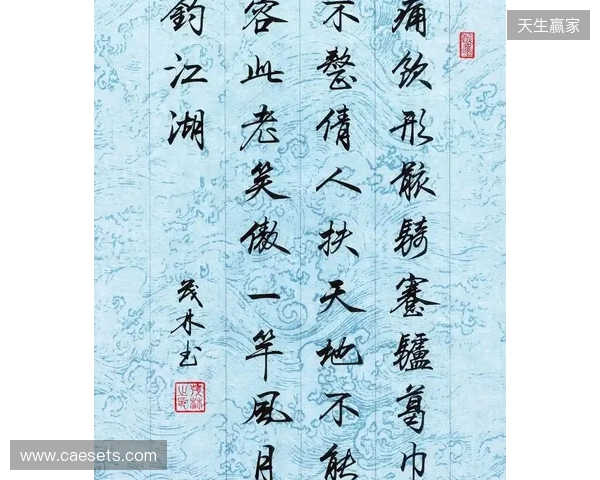 天生赢家
痛飲形骸騎蹇驢葛巾
不整倩人扶天地不能
容此老笑傲一竿風月
釣江湖
茂林书
www.caesets.com